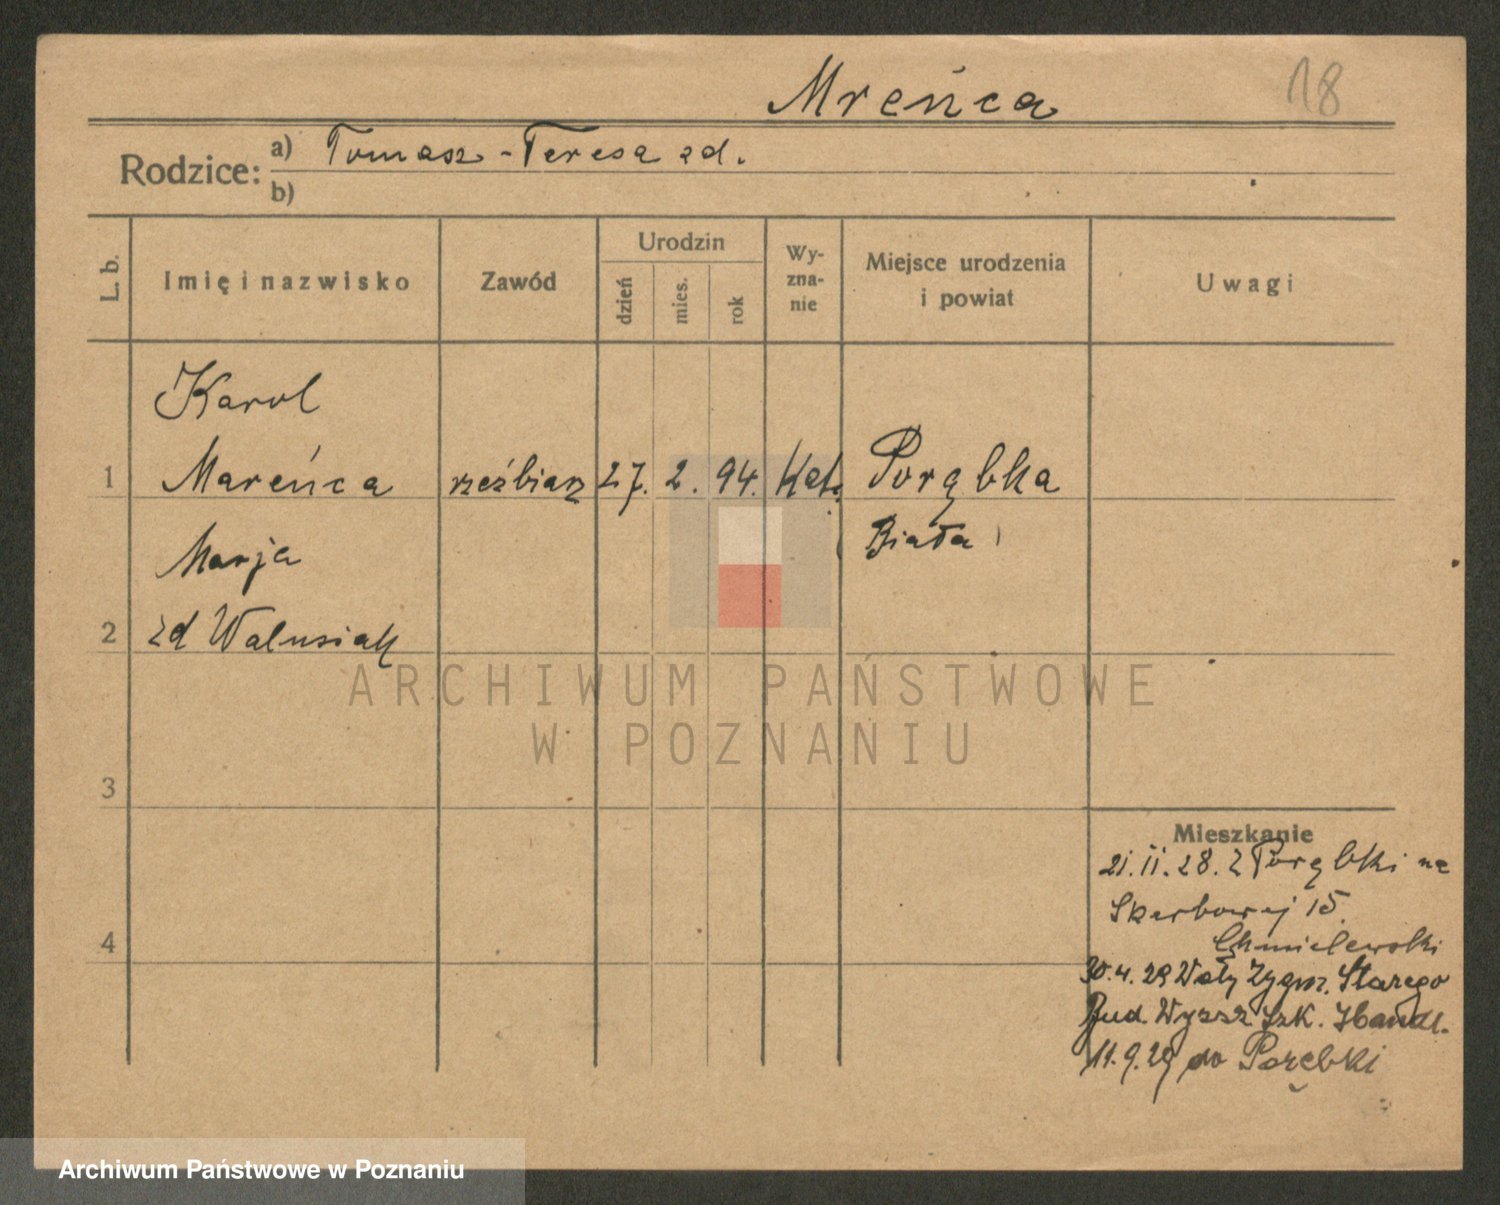 Mreńca 18
Rodzice: a) Tomasz - Teresa zd.
b)
L. b. Imię i nazwisko Zawód Urodzin dzień mies. rok Wy-zna-nie Miejsce urodzenia i powiat Uwagi
Karol
1 Mareńca rzeźbiarz 27. 2. 94. Kat. Porąbka
Marja Biała
2 zd Walusiak
3
Mieszkanie
21.II.28. z Porąbki na
Skarbowej 15.
4 Chmielewski
30.4.29 Wały Zygm. Starego
Bud. Wyższ Szk. Handl.
11.9.29 do Porębki
ARCHIWUM PAŃSTWOWE
W POZNANIU
Archiwum Państwowe w Poznaniu